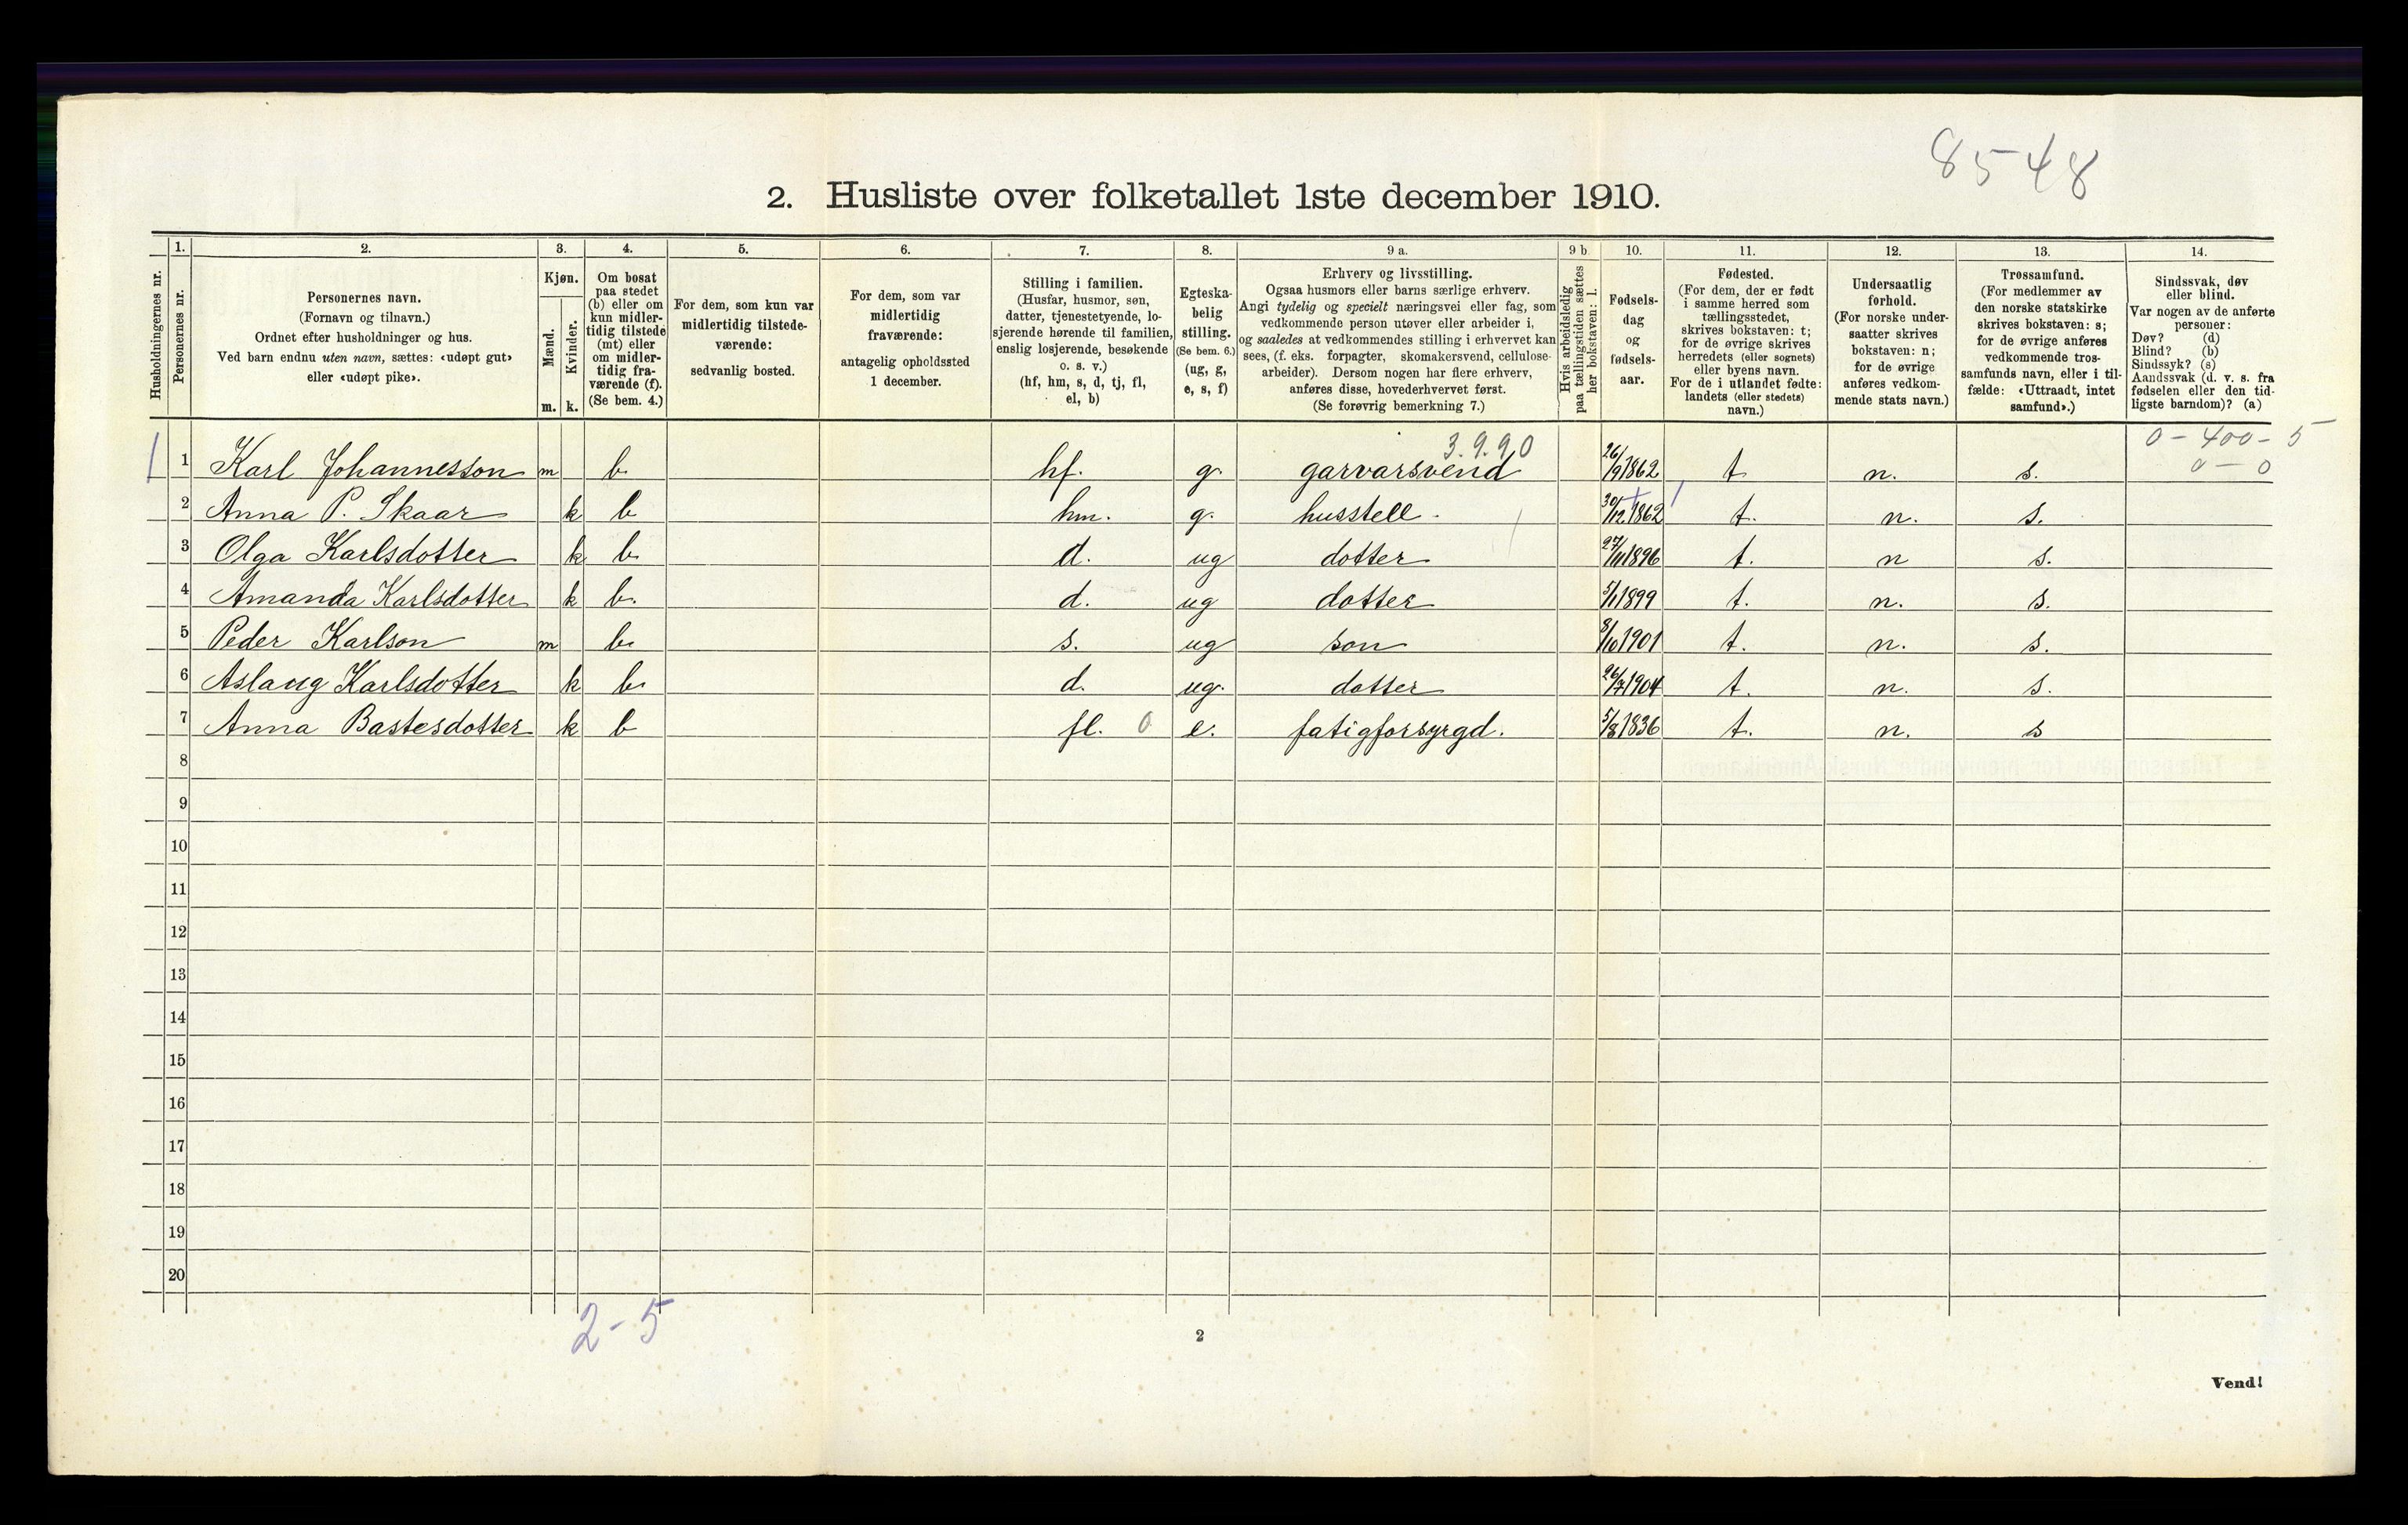 8548
2. Husliste over folketallet 1ste december 1910.
Husholdningernes nr.
1. Personernes nr.
2. Personernes navn. (Fornavn og tilnavn.) Ordnet efter husholdninger og hus. Ved barn endnu uten navn, sættes: «udøpt gut» eller «udøpt pike».
3. Kjøn. Mænd. m. Kvinder. k.
4. Om bosat paa stedet (b) eller om kun midler-tidig tilstede (mt) eller om midler-tidig fra-værende (f). (Se bem. 4.)
5. For dem, som kun var midlertidig tilstede-værende: sedvanlig bosted.
6. For dem, som var midlertidig fraværende: antagelig opholdssted 1 december.
7. Stilling i familien. (Husfar, husmor, søn, datter, tjenestetyende, lo-sjerende hørende til familien, enslig losjerende, besøkende o. s. v.) (hf, hm, s, d, tj, fl, el, b)
8. Egteska-belig stilling. (Se bem. 6.) (ug, g, e, s, f)
9 a. Erhverv og livsstilling. Ogsaa husmors eller barns særlige erhverv. Angi tydelig og specielt næringsvei eller fag, som vedkommende person utøver eller arbeider i, og saaledes at vedkommendes stilling i erhvervet kan sees, (f. eks. forpagter, skomakersvend, cellulose-arbeider). Dersom nogen har flere erhverv, anføres disse, hovederhvervet først. (Se forøvrig bemerkning 7.)
9 b. Hvis arbeidsledig paa tællingstiden sættes her bokstaven: l.
10. Fødsels-dag og fødsels-aar.
11. Fødested. (For dem, der er født i samme herred som tællingsstedet, skrives bokstaven: t; for de øvrige skrives herredets (eller sognets) eller byens navn. For de i utlandet fødte: landets (eller stedets) navn.)
12. Undersaatlig forhold. (For norske under-saatter skrives bokstaven: n; for de øvrige anføres vedkom-mende stats navn.)
13. Trossamfund. (For medlemmer av den norske statskirke skrives bokstaven: s; for de øvrige anføres vedkommende tros-samfunds navn, eller i til-fælde: «Uttraadt, intet samfund».)
14. Sindssvak, døv eller blind. Var nogen av de anførte personer: Døv? (d) Blind? (b) Sindssyk? (s) Aandssvak (d. v. s. fra fødselen eller den tid-ligste barndom)? (a)
3.9.90 0 - 400 - 5
0 - 0
1 1 Karl Johannesson m b. hf. g. garvarsvend 26/9 1862 t n. s.
2 Anna P. Skaar k b hm. g. husstell. 30/12 1862 t. n. s.
3 Olga Karlsdotter k b. d. ug dotter 27/11 1896 t. n s.
4 Amanda Karlsdotter k b. d. ug dotter 5/1 1899 t. n. s.
5 Peder Karlson m b. s. ug son 8/10 1901 t. n. s.
6 Aslaug Karlsdotter k b. d. ug. dotter 26/7 1904 t. n. s.
7 Anna Bastesdotter k b fl. 0 e. fatigforsyrgd. 5/8 1836 t. n. s
8
9
10
11
12
13
14
15
16
17
18
19
20
2-5
2
Vend!